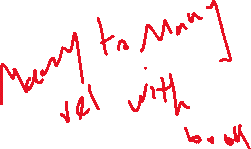 Many to Many
rel with
book